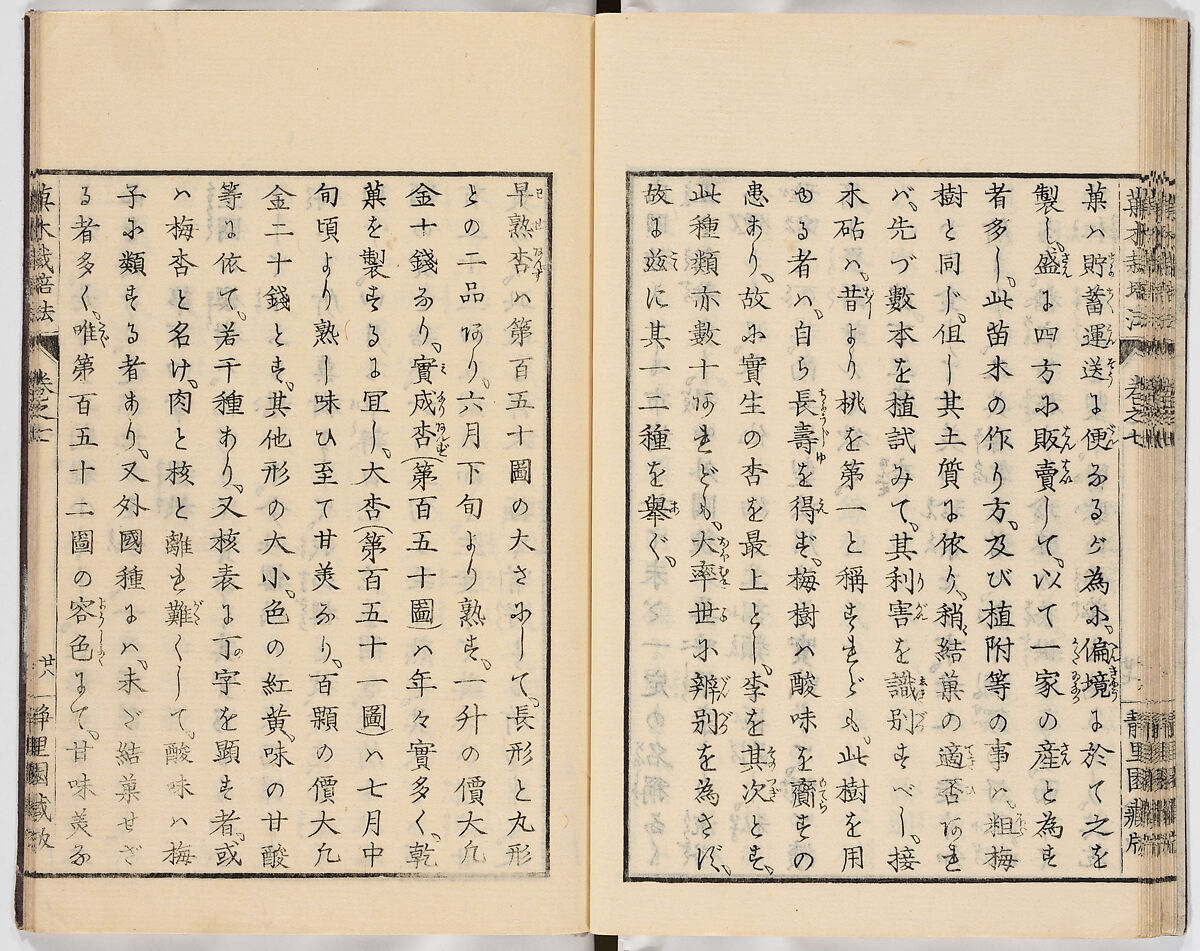 菓木栽培法 巻之七 静里園藏版
菓ハ貯蓄運送に便なるが為に、偏境に於て之を
製し、盛に四方に販賣して、以て一家の産と為す
者多し、此苗木の作り方、及び植附等の事ハ、粗梅
樹と同じ、但し其土質に依り、稍結菓の適否あれ
バ、先づ數本を植試みて、其利害を識別すべし、接
木砧ハ、昔より桃を第一と稱すれども、此樹を用
ゆる者ハ、自ら長壽を得ず、梅樹ハ酸味を齎すの
患あり、故に實生の杏を最上とし、李を其次とす、
此種類亦數十あれども、大率世に辨別を為さず、
故に茲に其一二種を擧ぐ、
早熟杏ハ第百五十圖の大さにして、長形と丸形
との二品あり、六月下旬より熟す、一升の價大凢
金十錢なり、實成杏(第百五十圖)ハ年々實多く、乾
菓を製するに宜し、大杏(第百五十一圖)ハ七月中
旬頃より熟し味ひ至て甘美なり、百顆の價大凢
金二十錢とす、其他形の大小、色の紅黄、味の甘酸
等に依て、若干種あり、又核表に丁字を顕す者、或
ハ梅杏と名け、肉と核と離れ難くして、酸味ハ梅
子に類する者あり、又外國種にハ、未だ結菓せざ
る者多く、唯第百五十二圖の容色にて、甘味美な
菓木栽培法 巻之七 廿八 静里園藏版